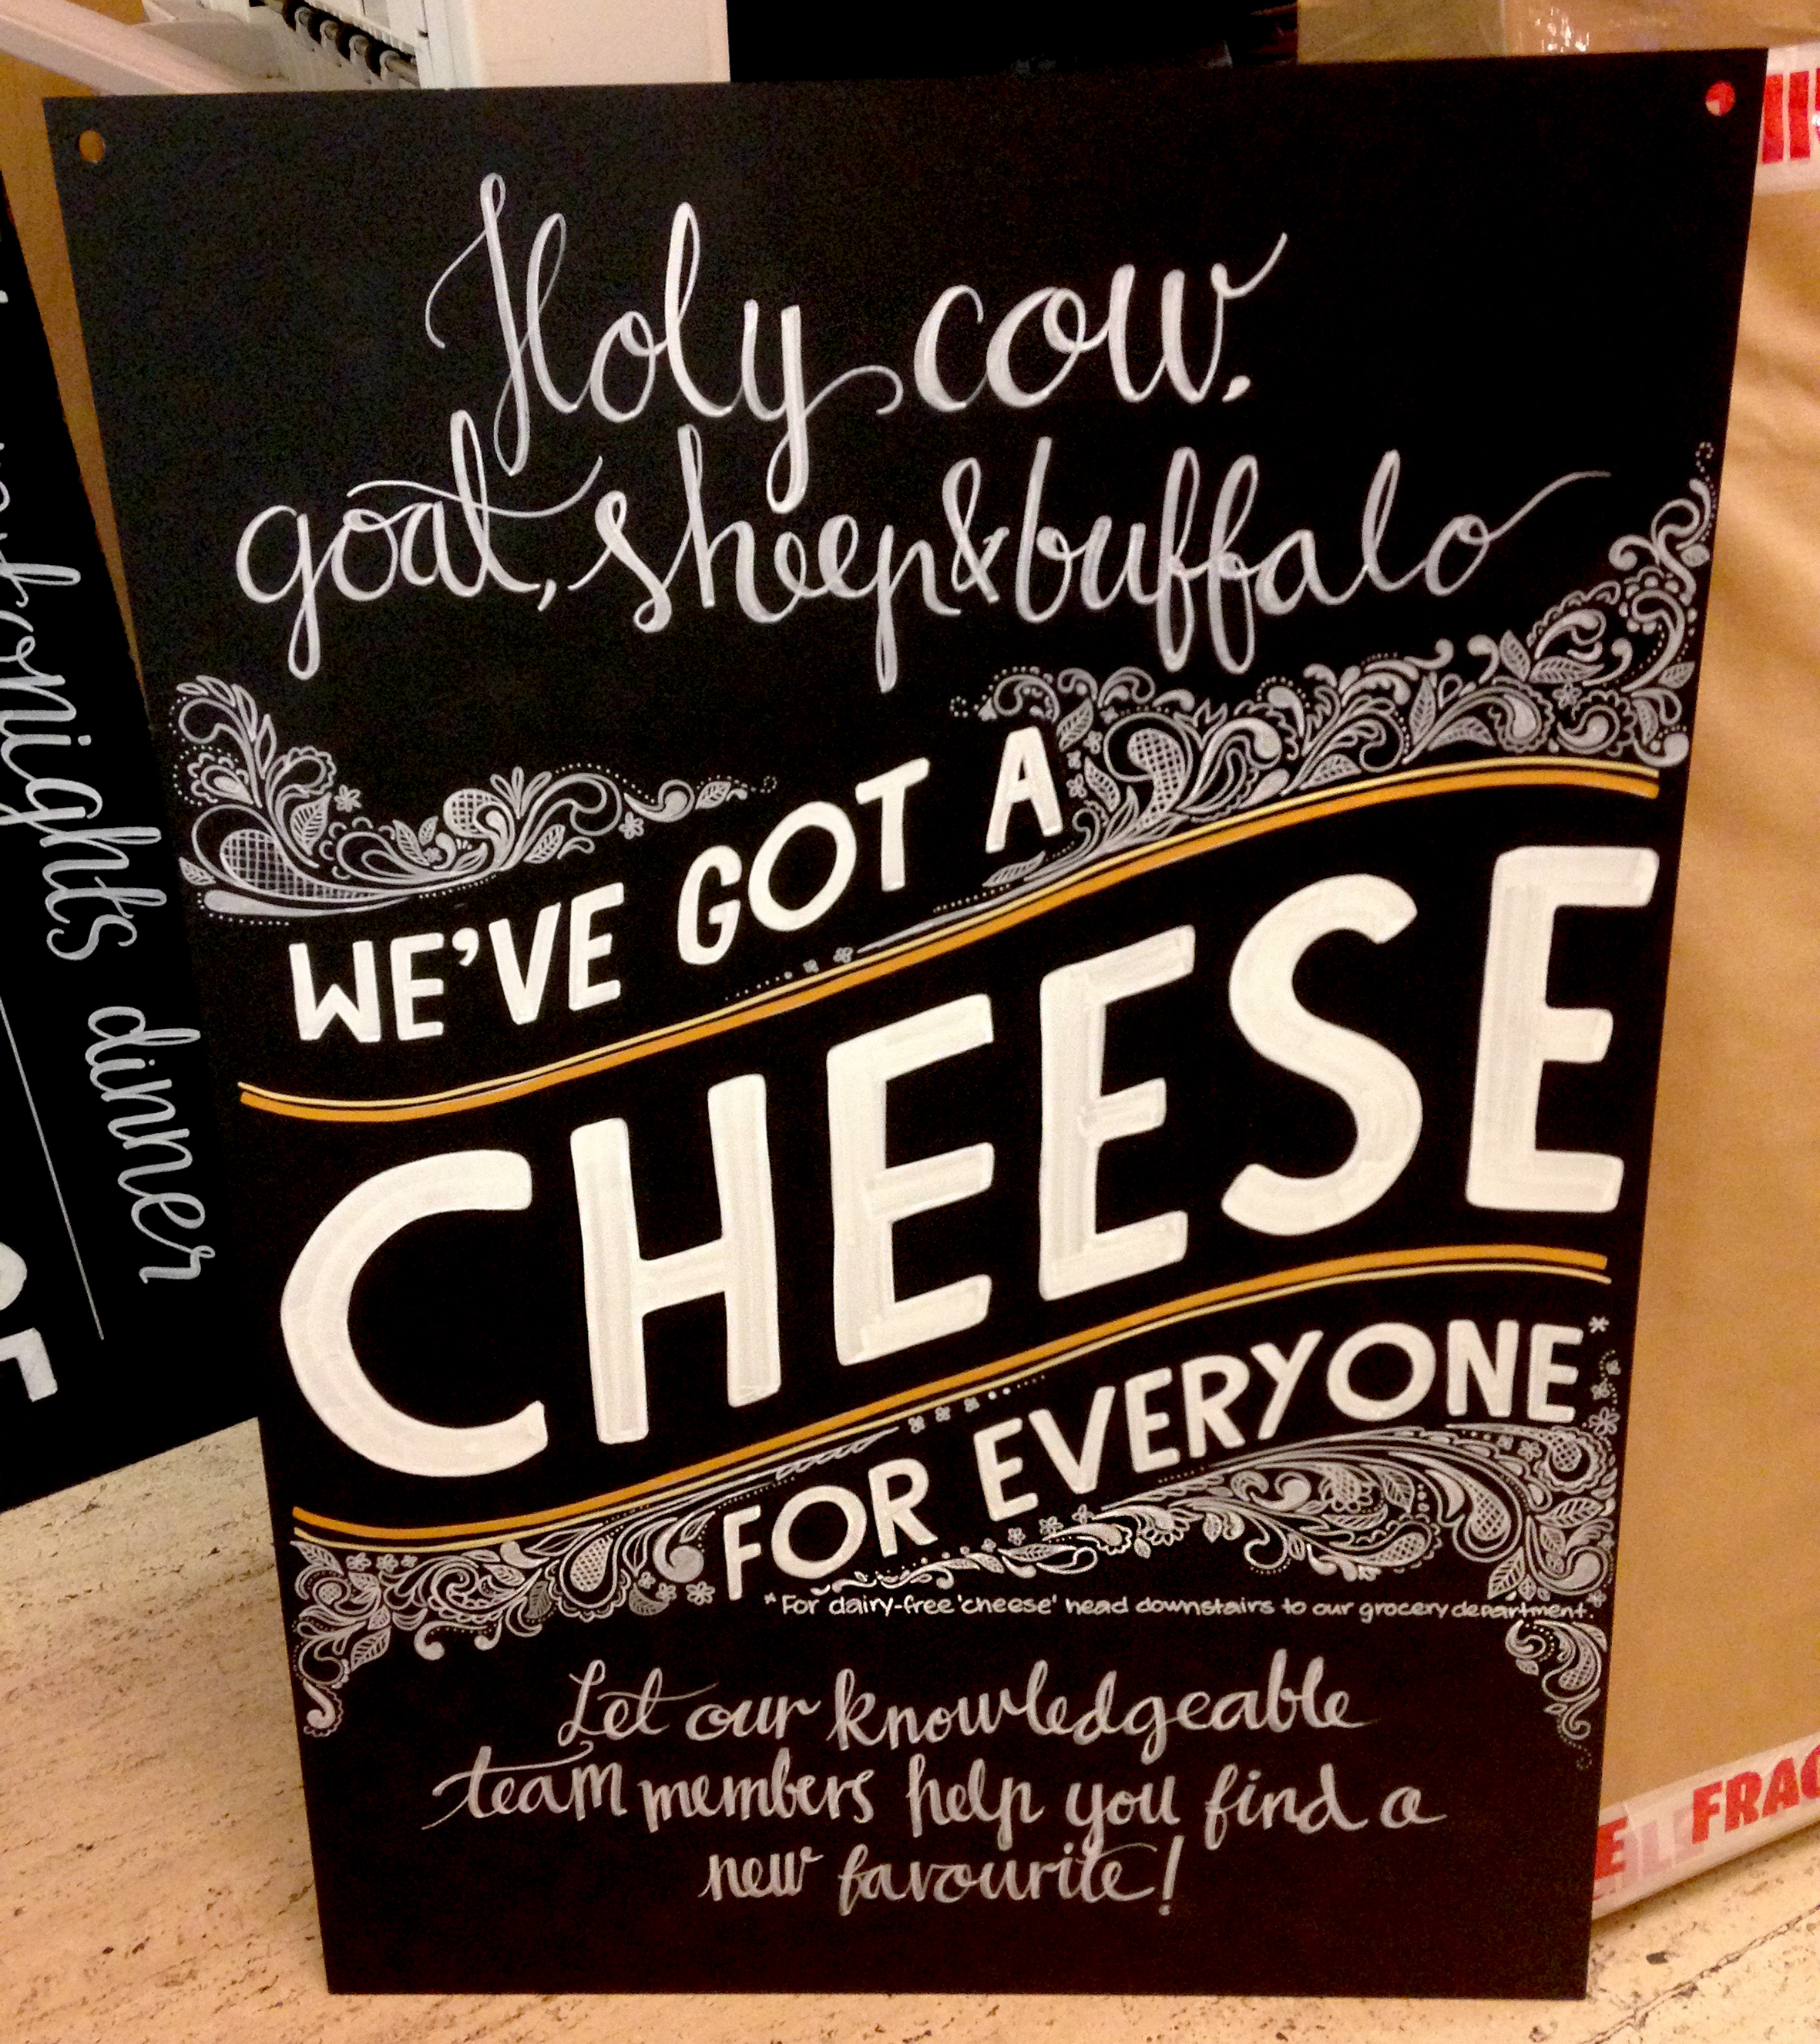 Holy cow,
goat, sheep & buffalo
WE'VE GOT A
CHEESE
FOR EVERYONE*
*For dairy-free 'cheese' head downstairs to our grocery department.
Let our knowledgeable
team members help you find a
new favourite!
nights dinner
FRAG